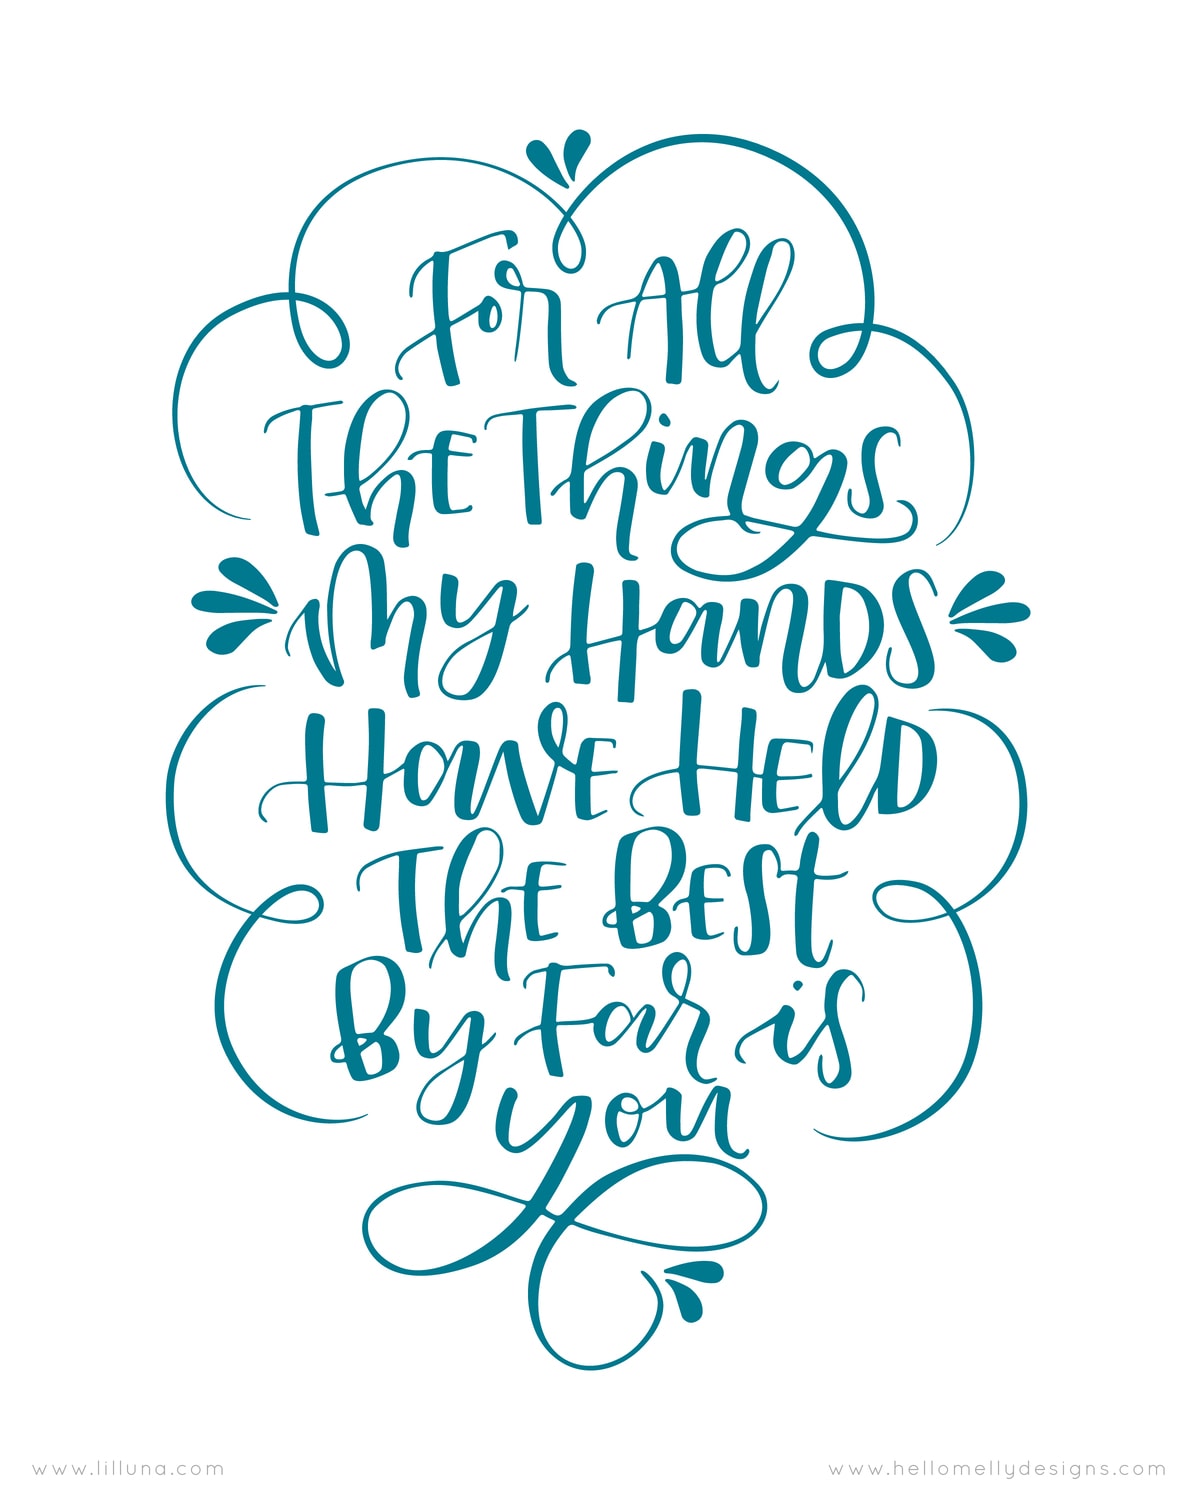 For All
The Things
My Hands
Have Held
The Best
By Far is
you
www.lilluna.com
www.hellomellydesigns.com